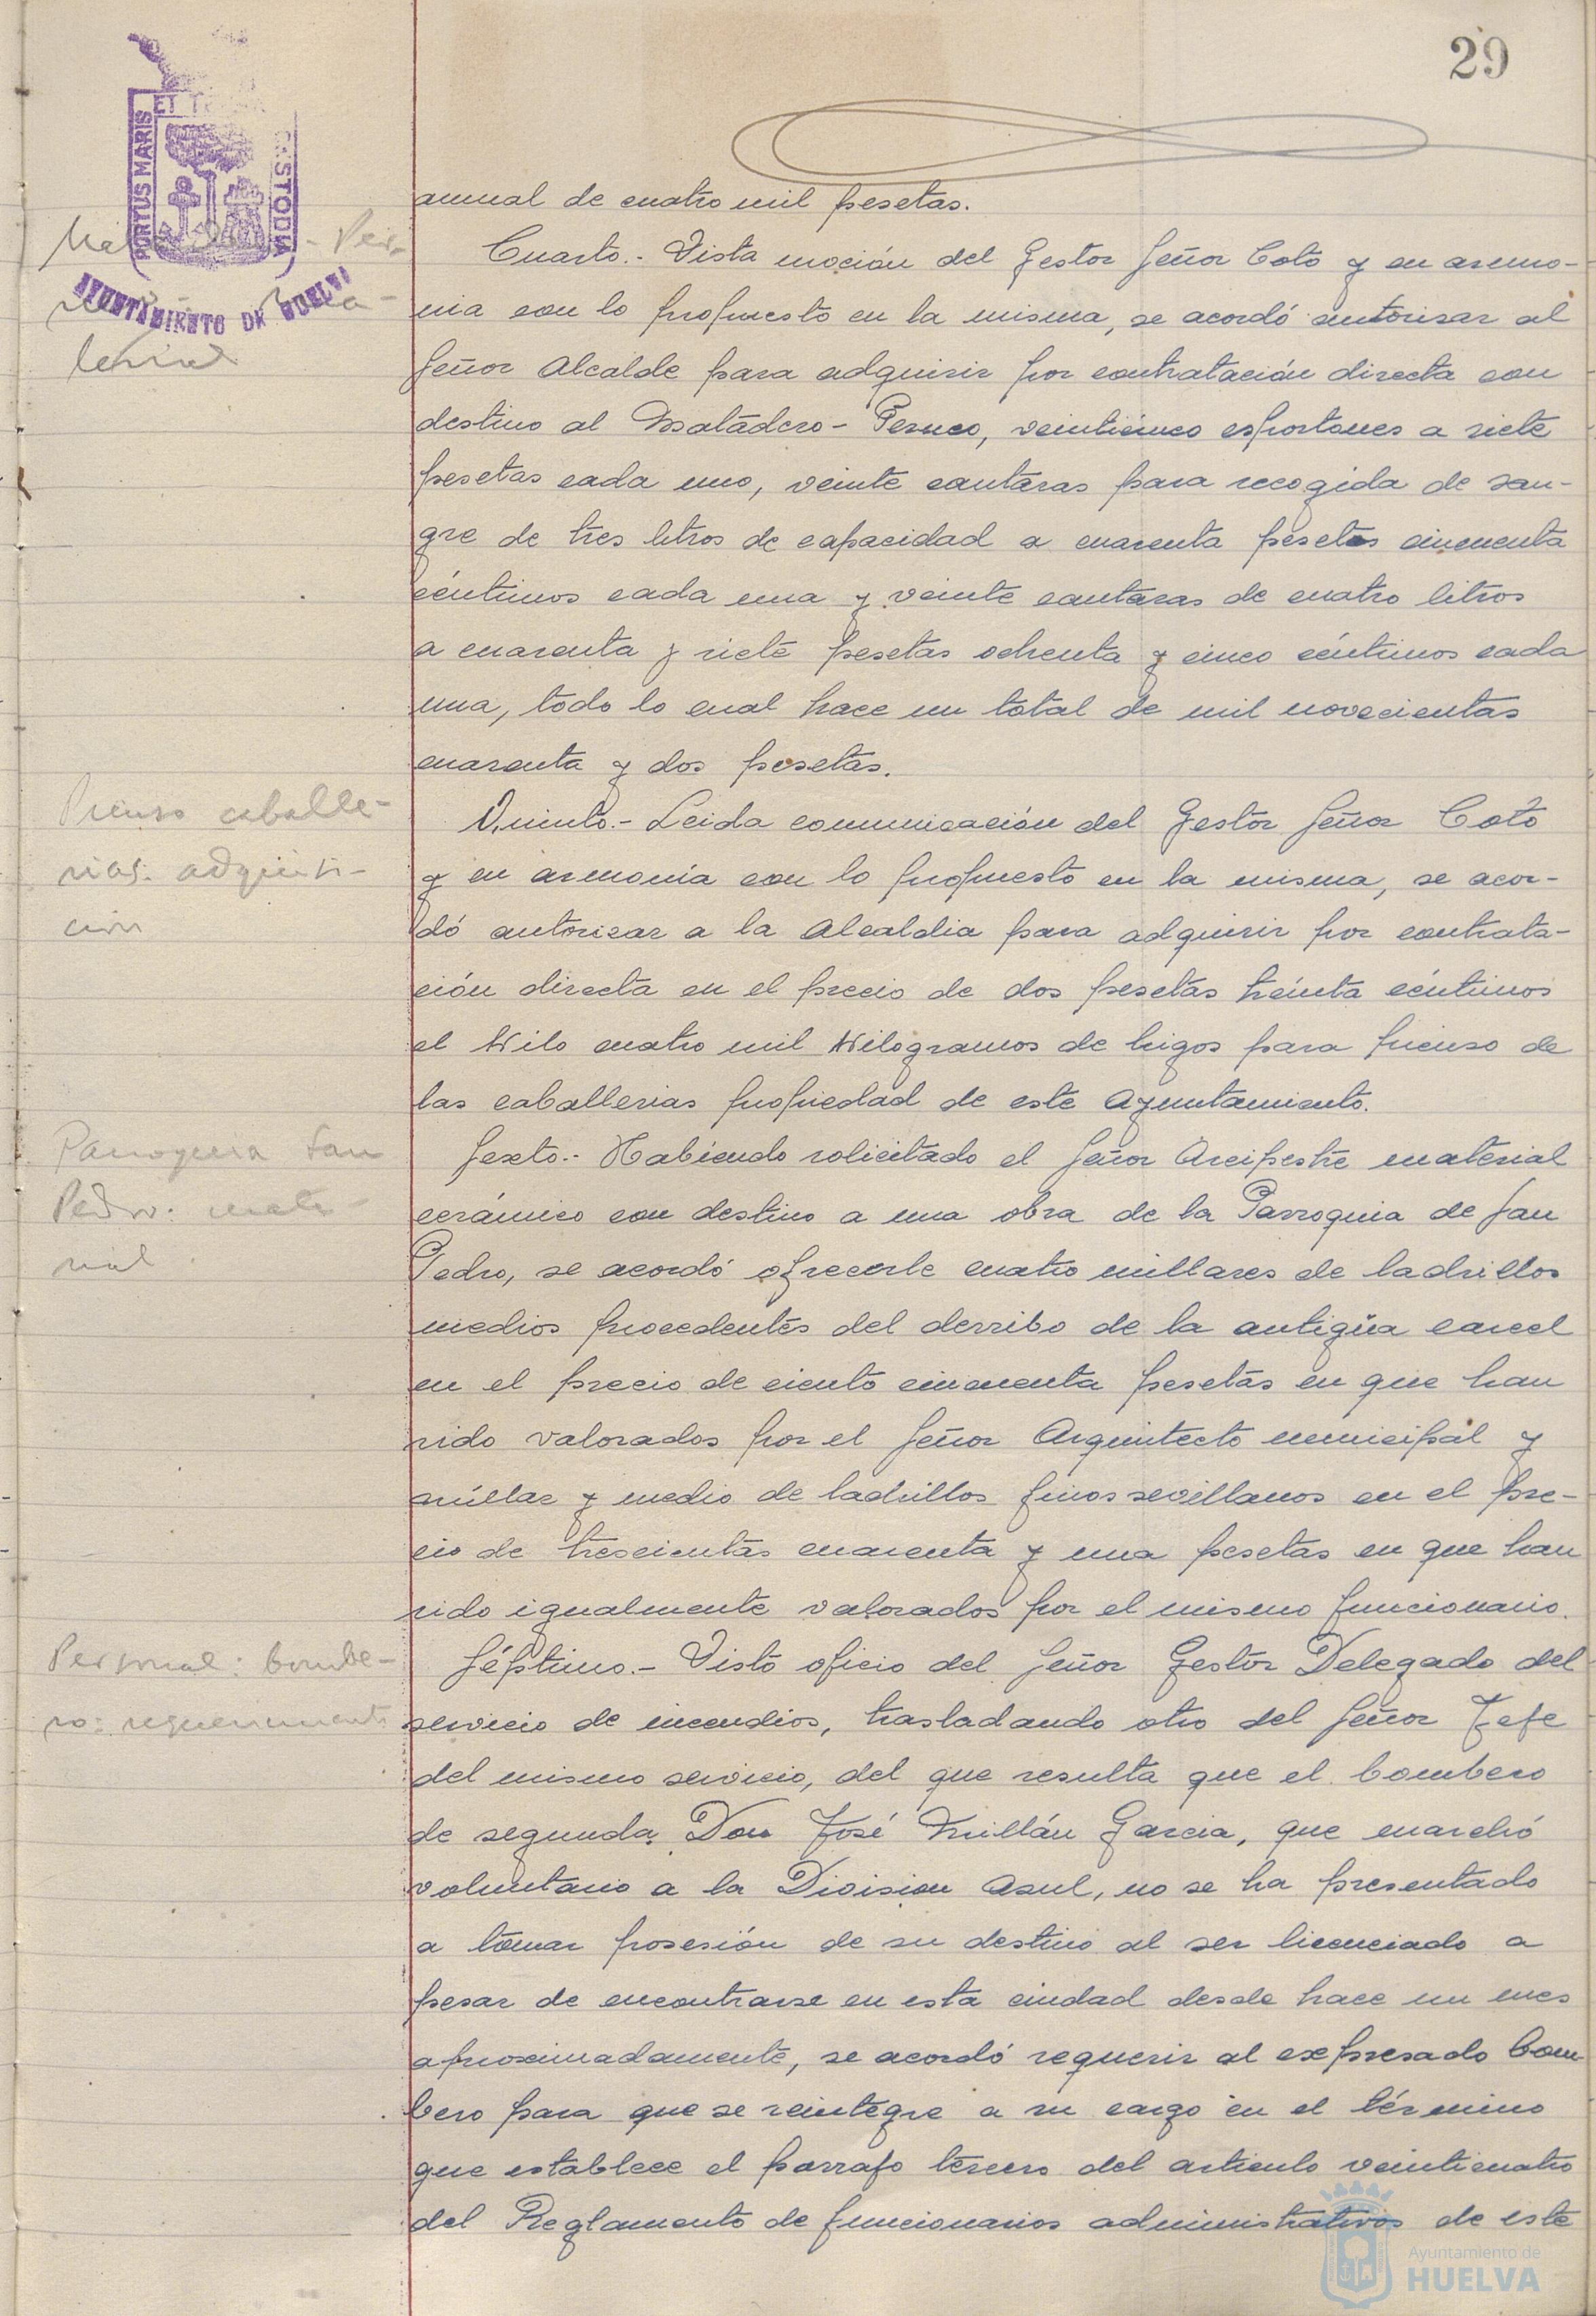 29
PORTUS MARIS ET T CUSTODIA
AYUNTAMIENTO DE HUELVA
anual de cuatro mil pesetas.
Cuarto.- Vista moción del Gestor Señor Coto y en armo-
nia con lo propuesto en la misma, se acordó autorisar al
Señor Alcalde para adquirir por contratación directa con
destino al Matadero-Perneo, veinticinco esportones a siete
pesetas cada uno, veinte cantaras para recogida de san-
gre de tres litros de capacidad a cuarenta pesetas cincuenta
céntimos cada una y veinte cantaras de cuatro litros
a cuarenta y siete pesetas ochenta y cinco céntimos cada
una, todo lo cual hace un total de mil novecientas
cuarenta y dos pesetas.
Pienso caballe-
rias: adquisi-
ción
Quinto.- Leida comunicación del Gestor Señor Coto
y en armonía con lo propuesto en la misma, se acor-
dó autorizar a la Alcaldia para adquirir por contrata-
ción directa en el precio de dos pesetas treinta céntimos
el kilo cuatro mil kilogramos de higos para pienso de
las caballerias propiedad de este Ayuntamiento.
Parroquia San
Pedro: mate-
rial
Sexto.- Habiendo solicitado el Señor Arcipestre material
cerámico con destino a una obra de la Parroquia de San
Pedro, se acordó ofrecerle cuatro millares de ladrillos
medios procedentes del derribo de la antigüa carcel
en el precio de ciento cincuenta pesetas en que han
sido valorados por el Señor Arquitecto municipal y
millar y medio de ladrillos finos sevillanos en el pre-
cio de trescientas cuarenta y una pesetas en que han
sido igualmente valorados por el mismo funcionario.
Personal: bombe-
ro: requerimiento
Séptimo.- Visto oficio del Señor Gestor Delegado del
servicio de incendios, trasladando otro del Señor Jefe
del mismo servicio, del que resulta que el bombero
de segunda Don José Millán Garcia, que marchó
voluntario a la Division Asul, no se ha presentado
a tomar posesión de su destino al ser licenciado a
pesar de encontrarse en esta ciudad desde hace un mes
aproximadamente, se acordó requerir al expresado bom-
bero para que se reintegre a su cargo en el término
que establece el parrafo tercero del articulo veinticuatro
del Reglamento de funcionarios administrativos de este
Ayuntamiento de
HUELVA